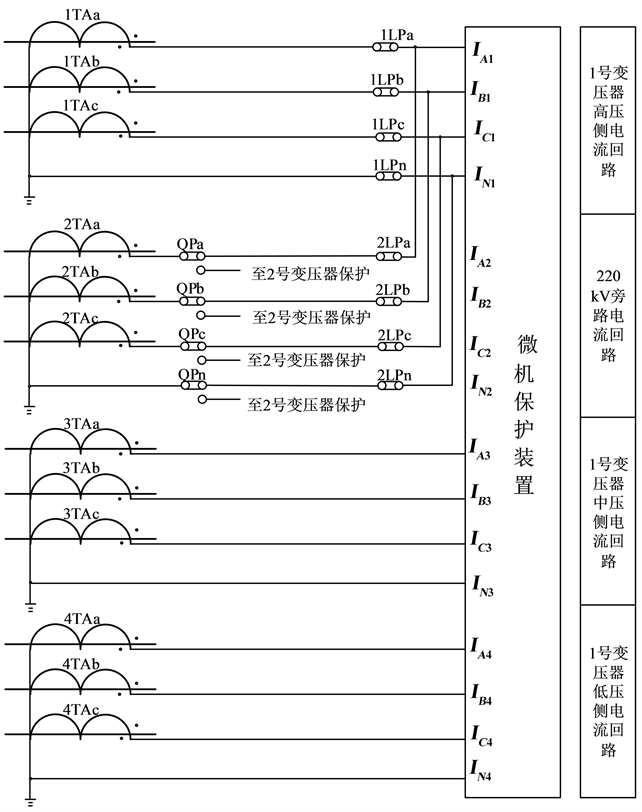 1TAa
1LPa
I_A1
1TAb
1LPb
I_B1
1TAc
1LPc
I_C1
1LPn
I_N1
1号变
压器
高压
侧电
流回
路
2TAa
QPa
2LPa
I_A2
至2号变压器保护
2TAb
QPb
2LPb
I_B2
至2号变压器保护
2TAc
QPc
2LPc
I_C2
至2号变压器保护
QPn
2LPn
I_N2
至2号变压器保护
220
kV旁
路电
流回
路
微
机
保
护
装
置
3TAa
I_A3
3TAb
I_B3
3TAc
I_C3
I_N3
1号变
压器
中压
侧电
流回
路
4TAa
I_A4
4TAb
I_B4
4TAc
I_C4
I_N4
1号变
压器
低压
侧电
流回
路